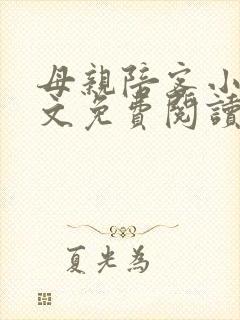 母親陪客小
文免費閱讀
夏光為